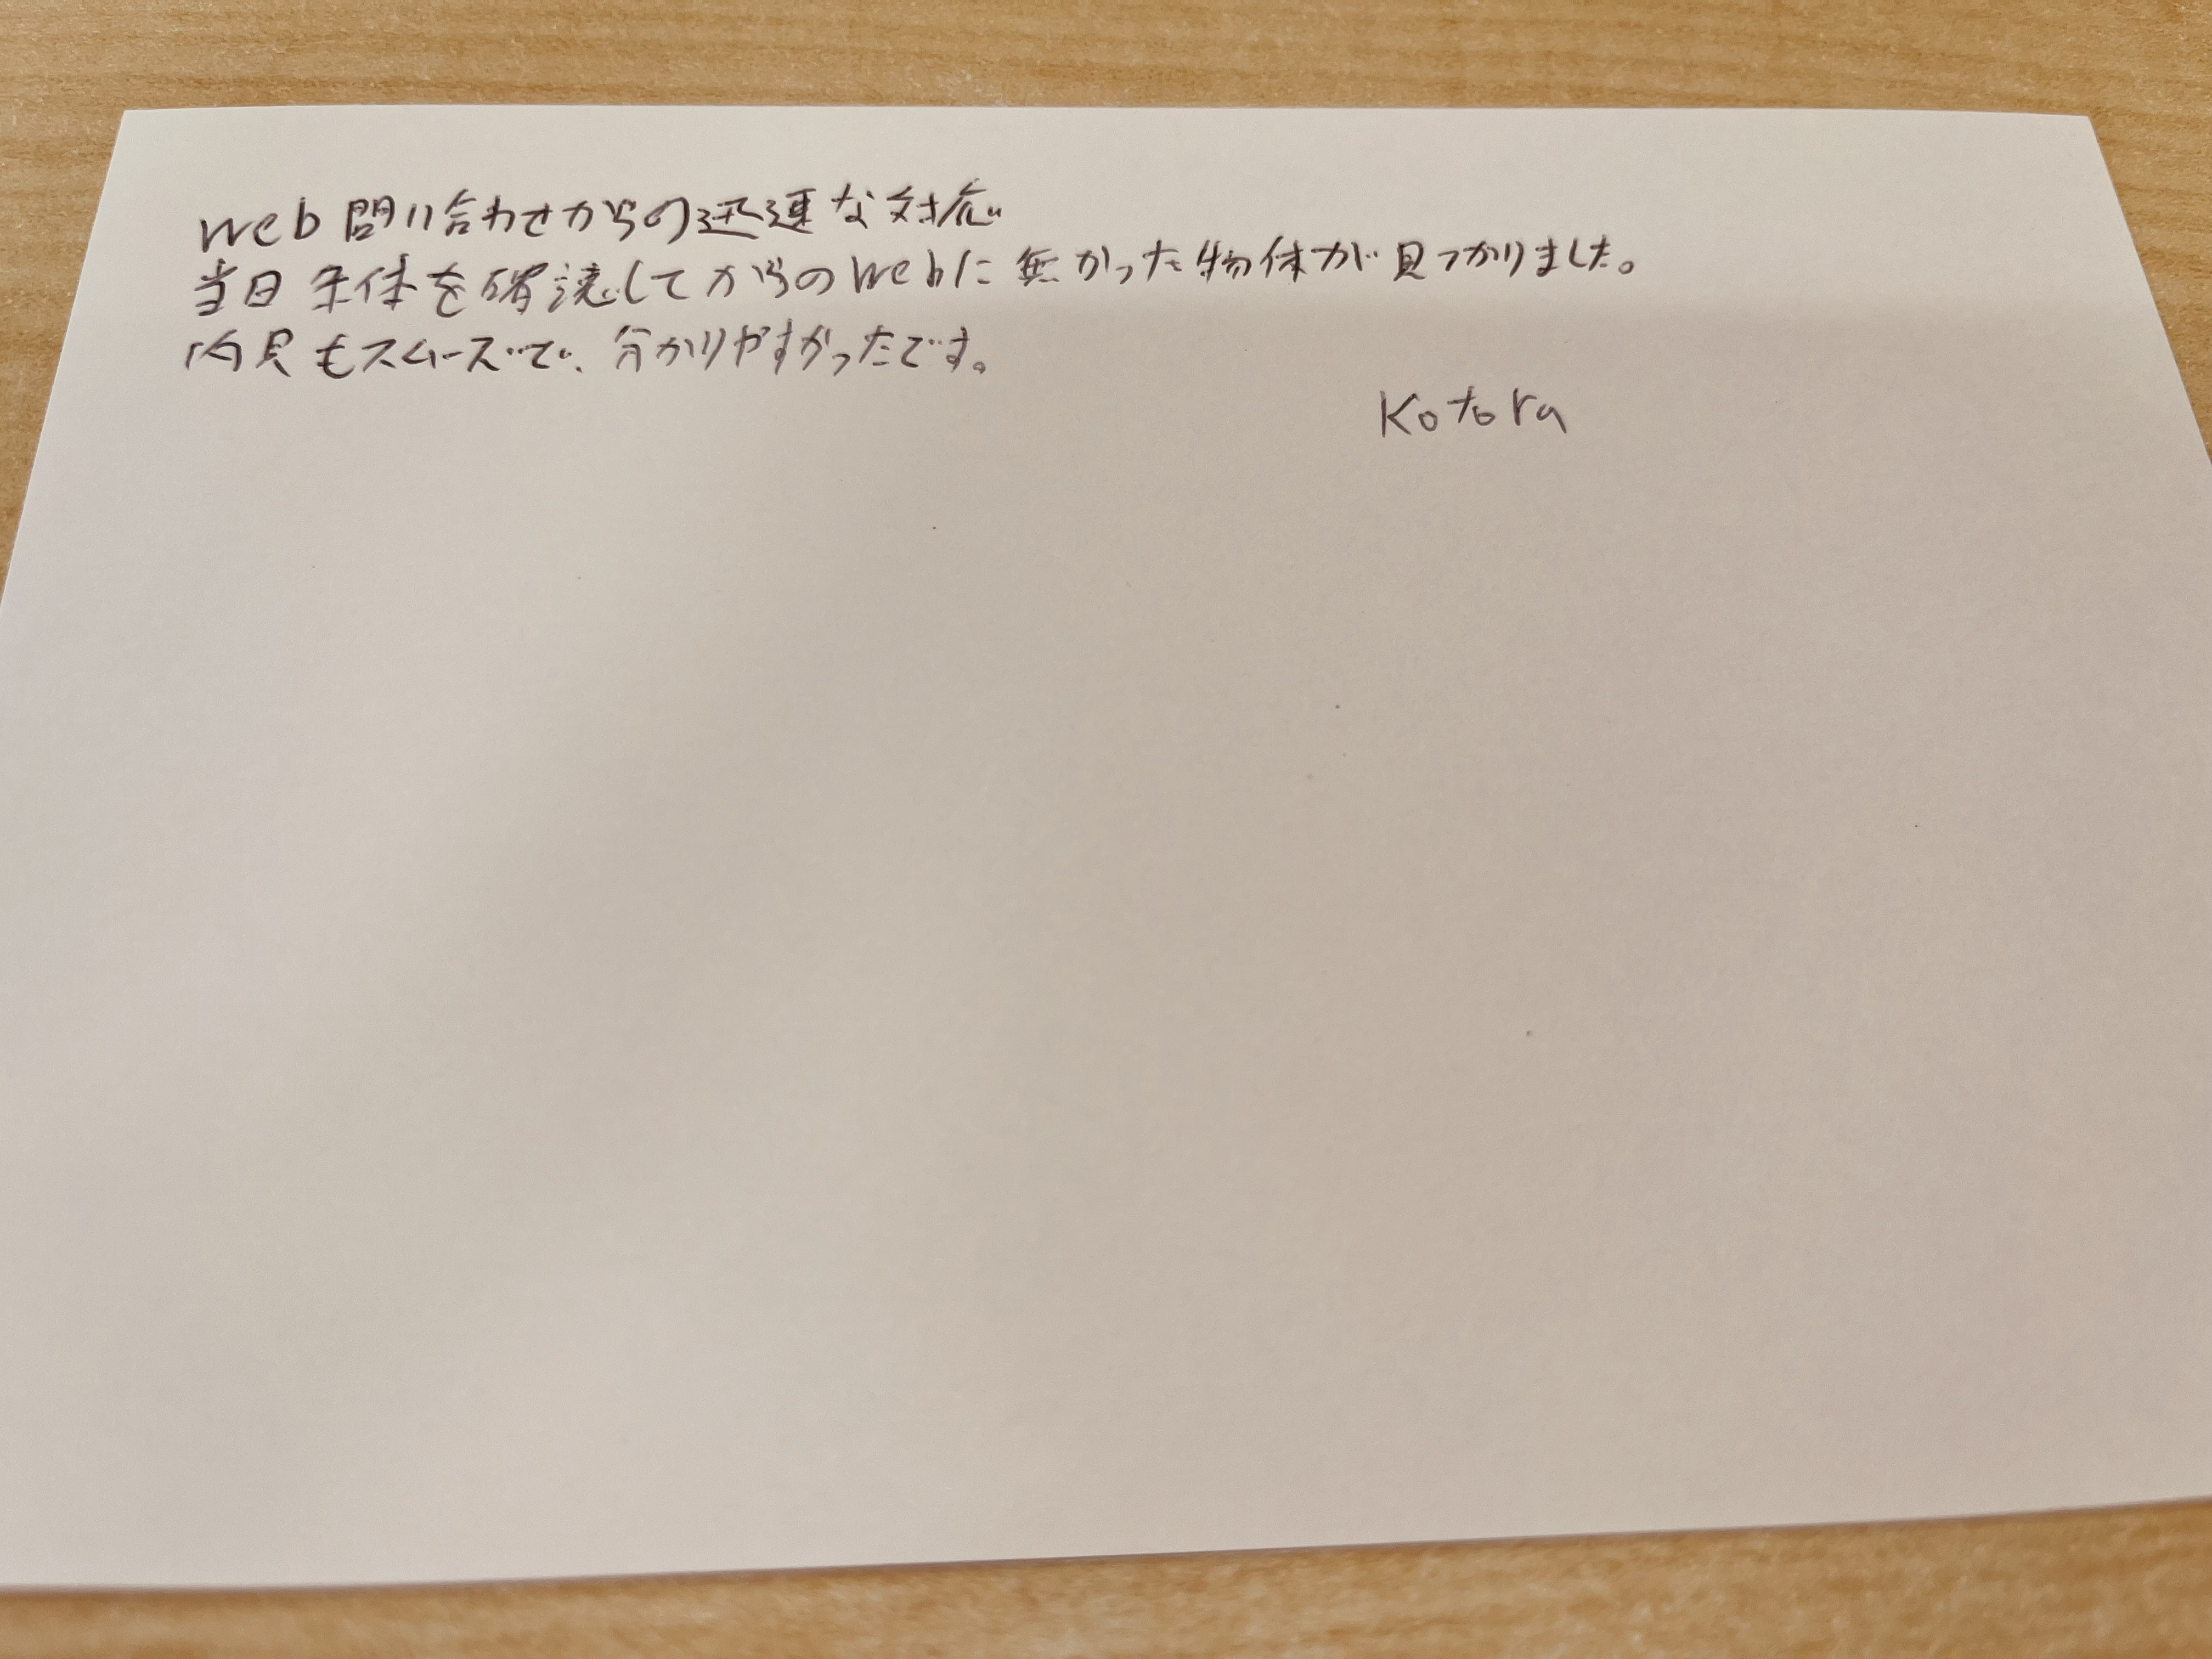 web問い合わせからの迅速な対応
当日 条体を確認してからのwebに無かった物体が見つかりました。
内見もスムーズで、分かりやすかったです。
Kotora